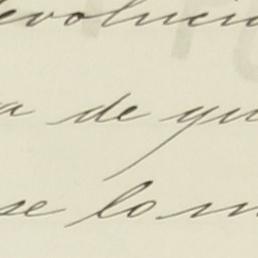 evoluci
a de qu
se lo m